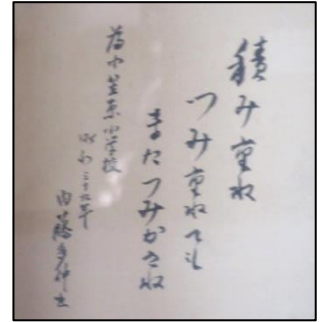 積み重ね
つみ重ねても
またつみかさね
為小笠原小学校
昭和三十九年
内藤多仲